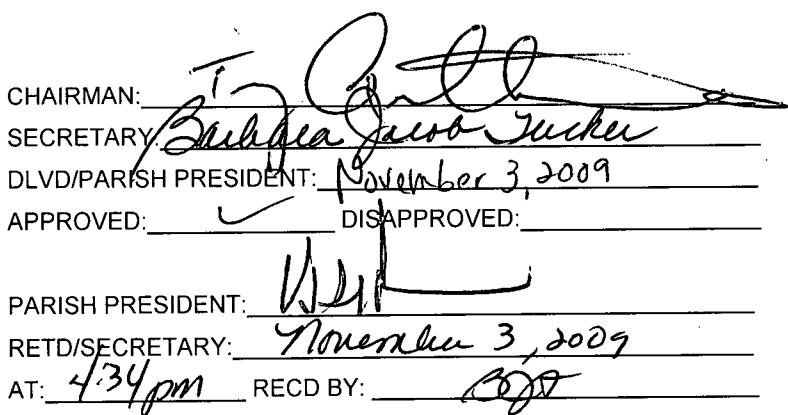 CHAIRMAN:
SECRETARY: Barbara Jacob Tucker
DLVD/PARISH PRESIDENT: November 3, 2009
APPROVED: ✓ DISAPPROVED:
PARISH PRESIDENT:
RETD/SECRETARY: November 3, 2009
AT: 4:34 pm RECD BY: BJT